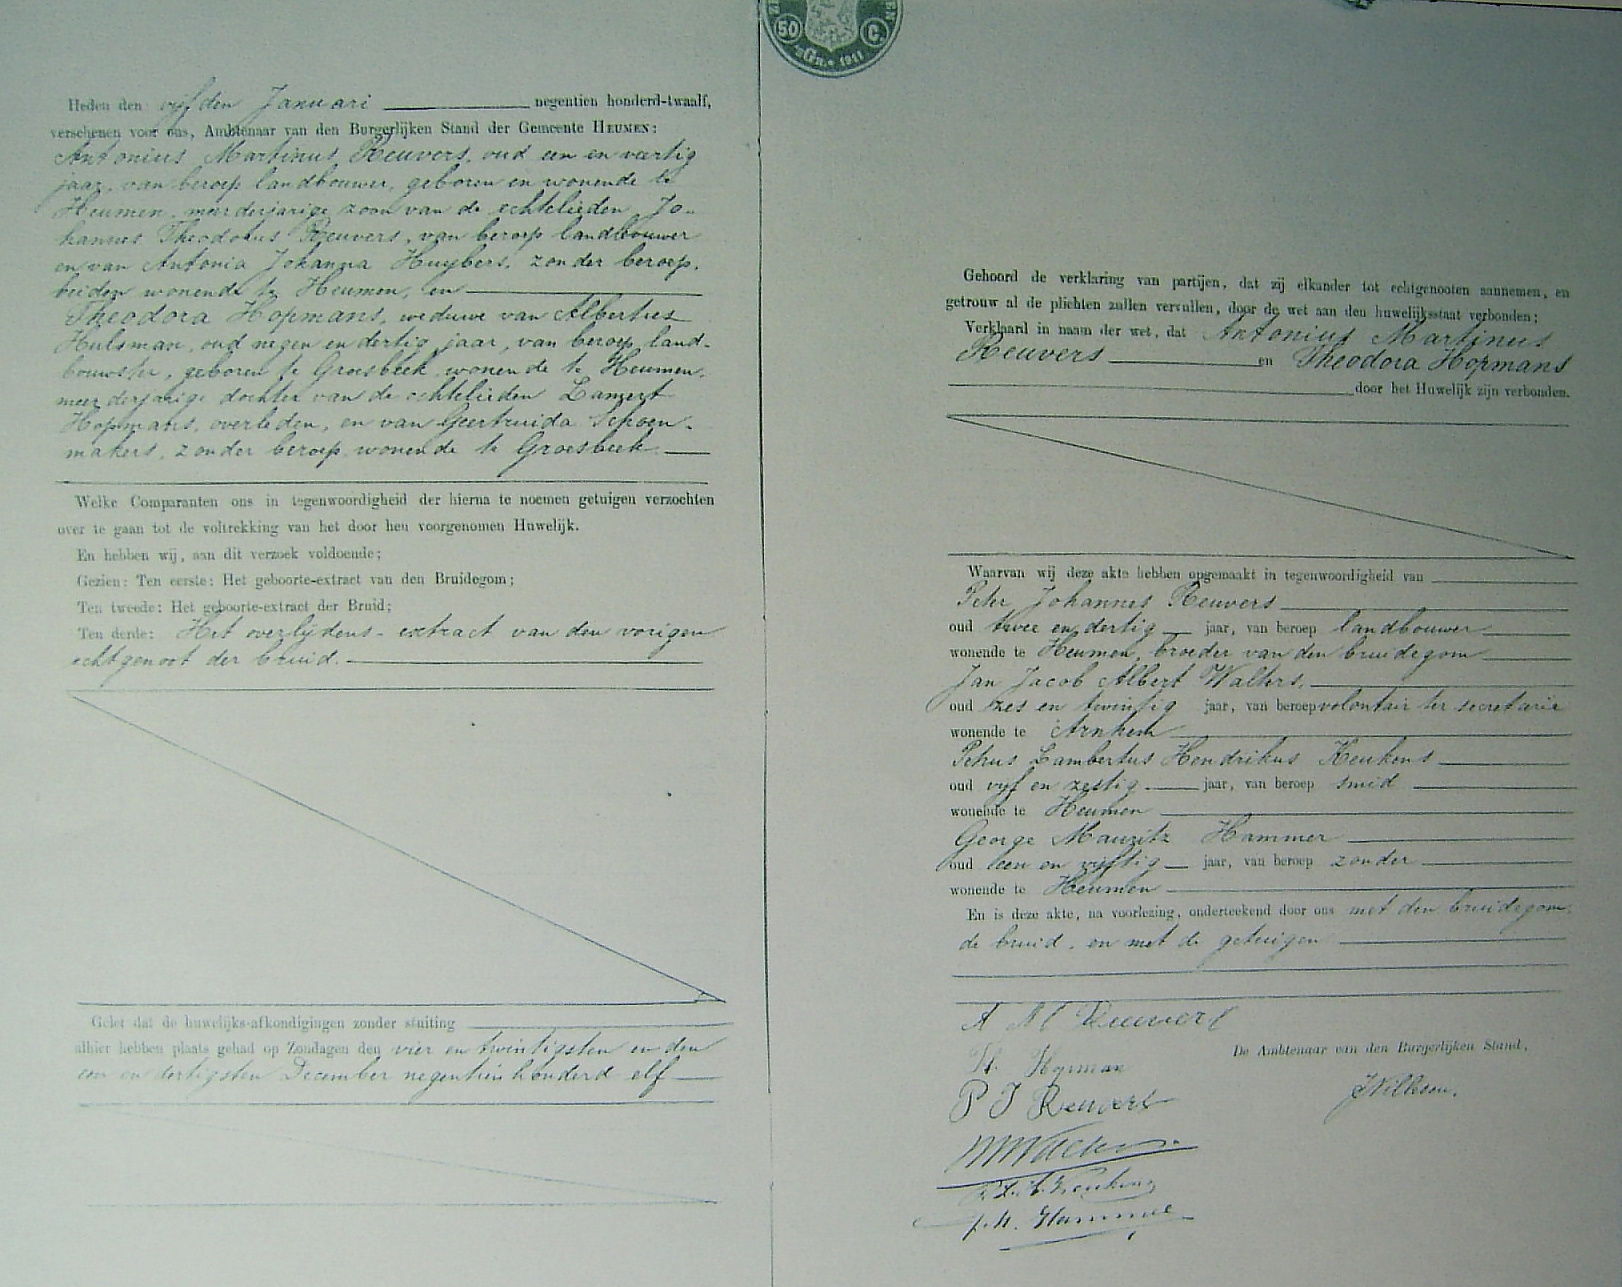 50 C.
Gn. 1911
Heden den vijfden Januari negentien honderd-twaalf,
verschenen voor ons, Ambtenaar van den Burgerlijken Stand der Gemeente HEUMEN:
Antonius Martinus Reuvers, oud een en veertig
jaar, van beroep landbouwer, geboren en wonende te
Heumen, meerderjarige zoon van de echtelieden Jo-
hannes Theodorus Reuvers, van beroep landbouwer
en van Antonia Johanna Huybers, zonder beroep,
beiden wonende te Heumen, en
Theodora Hopmans, weduwe van Albertus
Hulsman, oud negen en dertig jaar, van beroep land-
bouwster, geboren te Groesbeek, wonende te Heumen,
meerderjarige dochter van de echtelieden Lamert
Hopmans, overleden, en van Geertruida Schoen-
makers, zonder beroep, wonende te Groesbeek
Welke Comparanten ons in tegenwoordigheid der hierna te noemen getuigen verzochten
over te gaan tot de voltrekking van het door hen voorgenomen Huwelijk.
En hebben wij, aan dit verzoek voldoende;
Gezien: Ten eerste: Het geboorte-extract van den Bruidegom;
Ten tweede: Het geboorte-extract der Bruid;
Ten derde: Het overlijdens-extract van den vorigen
echtgenoot der bruid.
Gelet dat de huwelijks-afkondigingen zonder stuiting
alhier hebben plaats gehad op Zondagen den vier en twintigsten en den
een en dertigsten December negentien honderd elf
Gehoord de verklaring van partijen, dat zij elkander tot echtgenooten aannemen, en
getrouw al de plichten zullen vervullen, door de wet aan den huwelijksstaat verbonden;
Verklaard in naam der wet, dat Antonius Martinus
Reuvers en Theodora Hopmans
door het Huwelijk zijn verbonden.
Waarvan wij deze akte hebben opgemaakt in tegenwoordigheid van
Peter Johannes Reuvers
oud twee en dertig jaar, van beroep landbouwer
wonende te Heumen, broeder van den bruidegom
Jan Jacob Albert Walters,
oud zes en twintig jaar, van beroep volontair ter secretarie
wonende te Arnhem
Petrus Lambertus Hendrikus Keukens
oud vijf en zestig jaar, van beroep smid
wonende te Heumen
George Mauritz Hammer
oud een en vijftig jaar, van beroep zonder
wonende te Heumen
En is deze akte, na voorlezing, onderteekend door ons met den bruidegom,
de bruid, en met de getuigen
A M Reuvers
De Ambtenaar van den Burgerlijken Stand,
Th. Hopman
P J Reuvers
Hammer